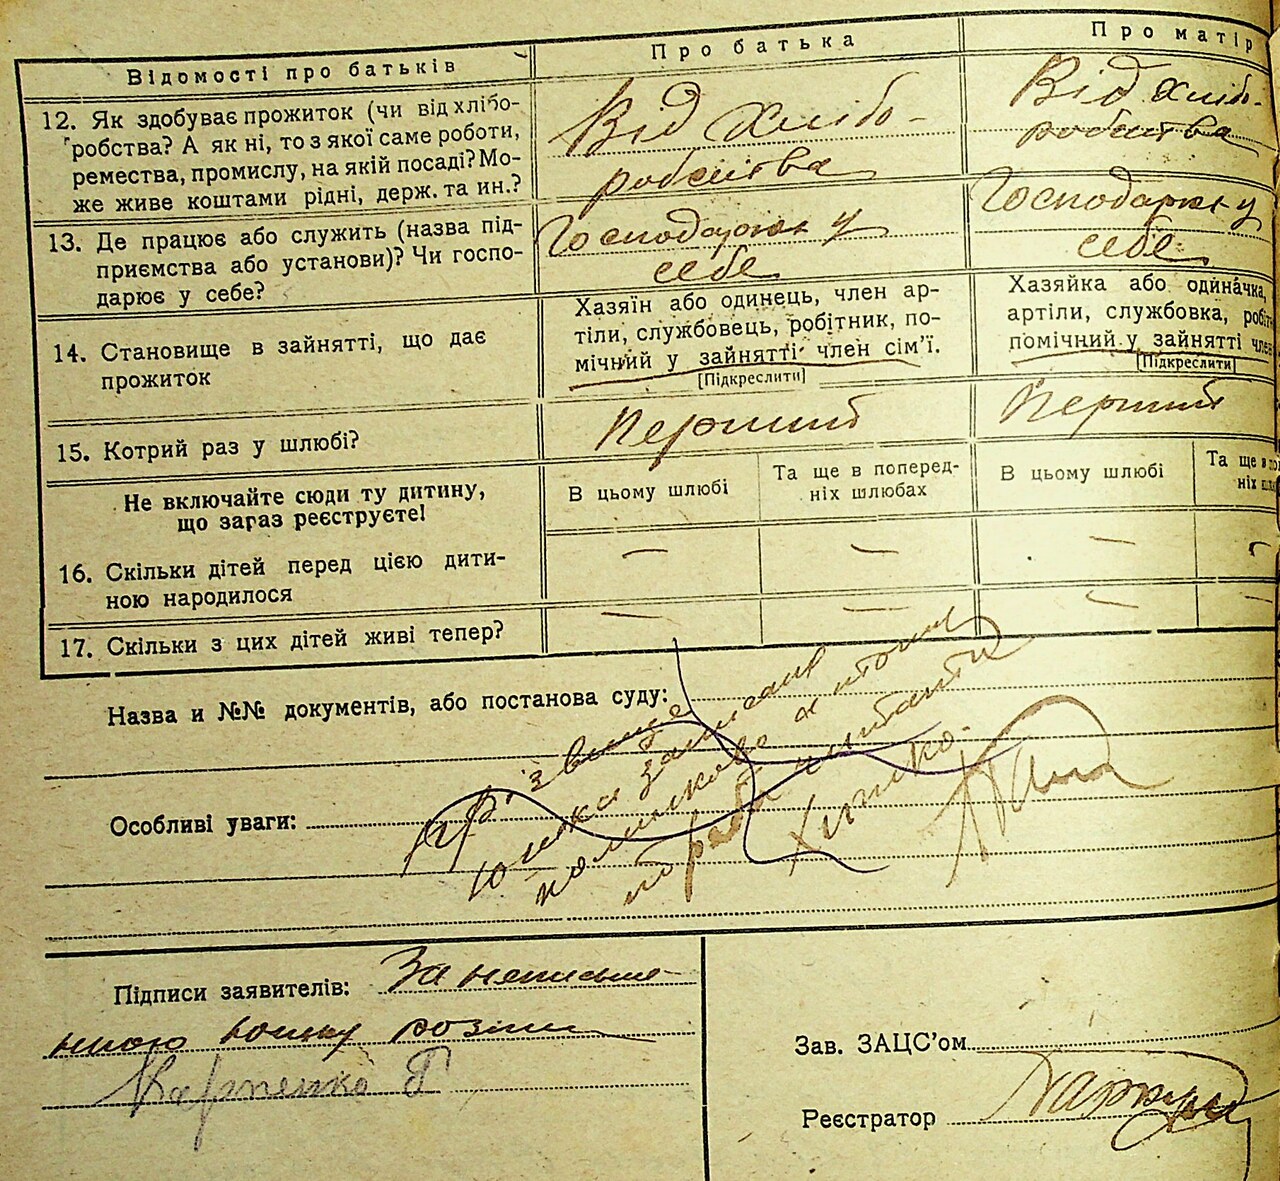 Відомості про батьків
Про батька
Про матір
12. Як здобуває прожиток (чи від хлібо-
робства? А як ні, то з якої саме роботи,
ремества, промислу, на якій посаді? Мо-
же живе коштами рідні, держ. та ин.?
Від хлібо-
робства
Від хлібо-
робства
13. Де працює або служить (назва під-
приємства або установи)? Чи госпо-
дарює у себе?
Господарює у
себе
Господарює у
себе
14. Становище в зайнятті, що дає
прожиток
Хазяїн або одинець, член ар-
тіли, службовець, робітник, по-
мічний у зайнятті член сім’ї.
[Підкреслити]
Хазяйка або одиначка,
артіли, службовка, робіт
помічний у зайнятті член
[Підкреслити]
15. Котрий раз у шлюбі?
Перший
Перший
Не включайте сюди ту дитину,
що зараз реєструєте!
В цьому шлюбі
Та ще в поперед-
ніх шлюбах
В цьому шлюбі
Та ще в по
ніх шлю
16. Скільки дітей перед цією дити-
ною народилося
— — — —
17. Скільки з цих дітей живі тепер?
— — — —
Назва и №№ документів, або постанова суду:
Особливі уваги:
Прізвище
записане
помилкове а
треба читати
Підписи заявителів: За неписьме-
нною
Карпенко Г
Зав. ЗАЦС’ом
Реєстратор